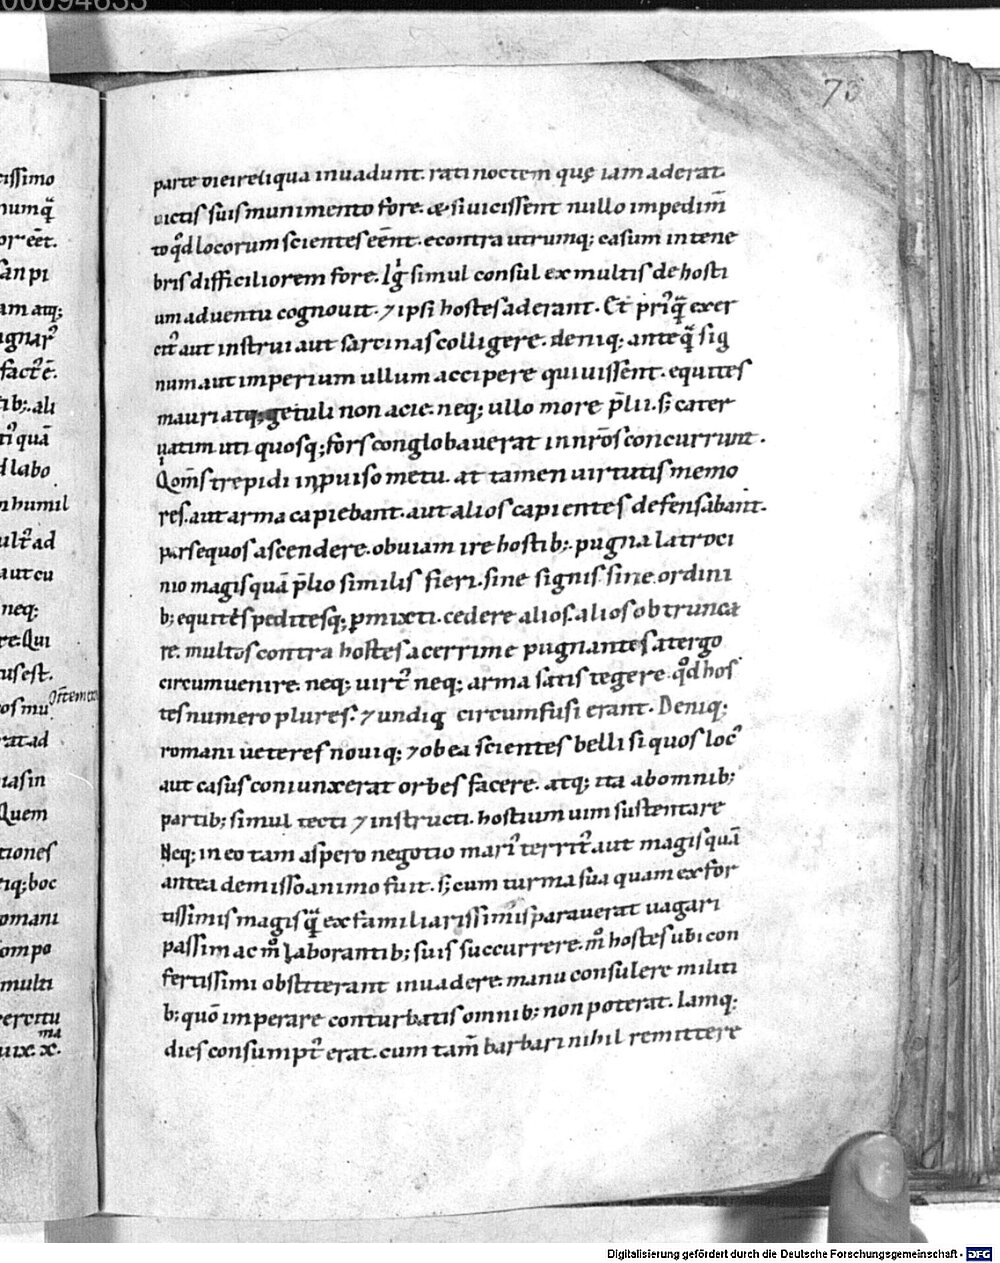 00094633
73
cissimo
numq̃
or eēt.
san pi
am atq;
ugnar̃
fact̃ ē.
ib;. ali
ti quā
d labo
n humil
ult̃ ad
aut cu
neq;
re. Qui
us est.
os mu
rat ad
iasin
Quem
tiones
tiq; boc
omani
ompo
multi
percitu
ma
uix. x.
parte diei reliqua inuadunt. rati noctem que iam aderat.
uictis suis munimento fore. & si uicissent nullo impedim̄
to qd̉ locorum scientes eēnt. econtra utrumq; casum in tene
bris difficiliorem fore. Igr̉ simul consul ex multis de hosti
um aduentu cognouit. ⁊ ipsi hostes aderant. Et prỉq̃ exer
cit̃ aut instrui aut sarcinas colligere. deniq; anteq̃ sig
num aut imperium ullum accipere quiuissent. equites
mauri atq; getuli non acie. neq; ullo more p̄lii. s; cater
uatim uti quosq; fors conglobauerat in nr̄os concurrunt.
Qom̄s trepidi inprouiso metu. at tamen uirtutis memo
res. aut arma capiebant. aut alios capientes defensabant.
pars equos ascendere. obuiam ire hostib;. pugna latroci
nio magis quā p̄lio similis fieri. sine signis. sine ordini
b; equites peditesq; ꝑmixti. cedere alios. alios obtrunca
re. multos contra hostes acerrime pugnantes a tergo
circumuenire. neq; uirt̃ neq; arma satis tegere. qd̉ hos
tes numero plures. ⁊ undiq circumfusi erant. Deniq;
romani ueteres nouiq; ⁊ ob ea scientes belli si quos loc̉
aut casus coniunxerat orbes facere. atq; ita ab omnib;
partib; simul tecti ⁊ instructi. hostium uim sustentare
Neq; in eo tam aspero negotio marỉ territ̃ aut magis quā
antea demisso animo fuit. s; cum turma sua quam ex for
tissimis magis q̃ ex familiarissimis parauerat uagari
passim ac m̊ laborantib; suis succurrere. m̊ hostes ubi con
fertissimi obstiterant inuadere. manu consulere militi
b; quō imperare conturbatis omnib; non poterat. Iamq;
dies consumpt̃ erat. cum tam̄ barbari nihil remittere
Digitalisierung gefördert durch die Deutsche Forschungsgemeinschaft - DFG